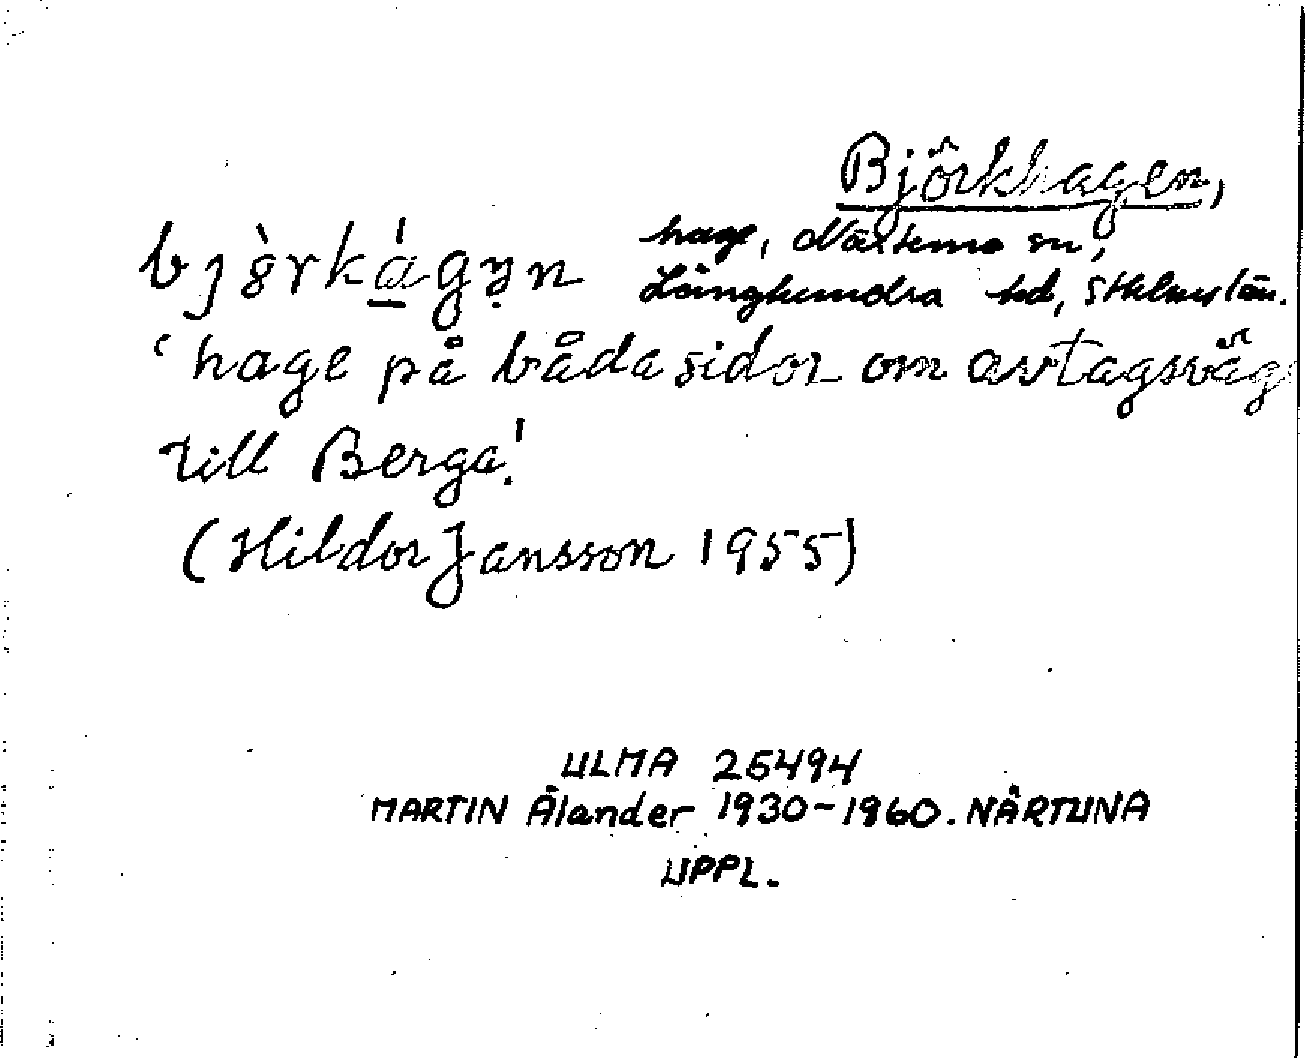 Björkhagen,
hage, Närtuna sn,
Långhundra hd, Sthlms län.
bjòrkágən
'hage på båda sidor om avtagsväg
till Berga'.
(Hildor Jansson 1955)
ULMA 26494
MARTIN Ålander 1930-1960. NÄRTUNA
UPPL.